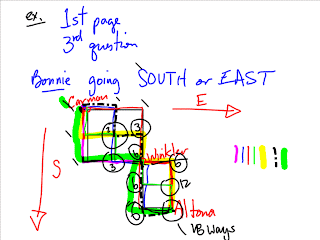 ex. 1st page
3rd question
Bonnie going SOUTH or EAST
Carman
E
1 3
S
3 6 Winkler 6
6 12
6 Altona
18 ways